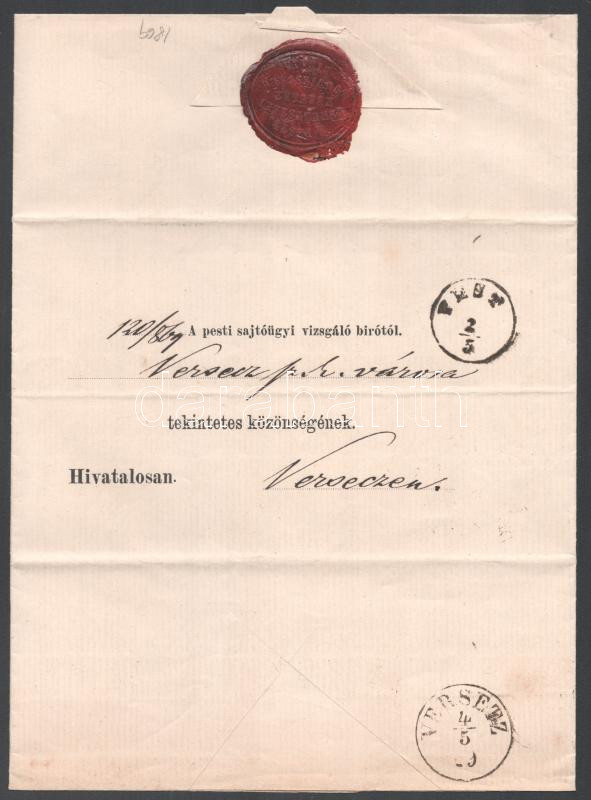 1869
PEST
2
5
120/869 A pesti sajtóügyi vizsgáló birótól.
Versecz sz. k. városa
darabanth
tekintetes közönségének.
Hivatalosan.
Verseczen.
VERSETZ
4
5
69